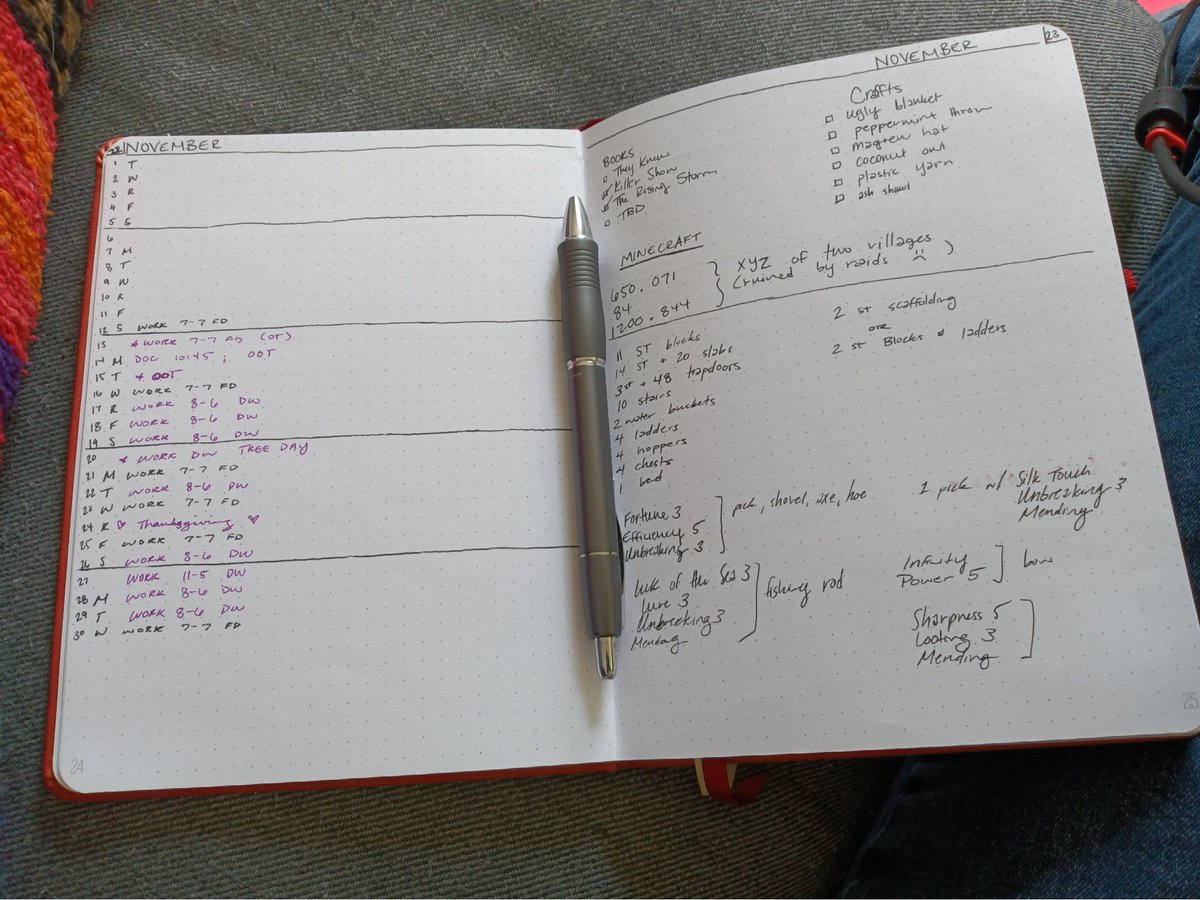 22 NOVEMBER
1 T
2 W
3 R
4 F
5 S
6
7 M
8 T
9 W
10 R
11 F
12 S WORK 7-7 FD
13 * WORK 7-7 FD (OT)
14 M DOC 10:45 ; OOT
15 T * OOT
16 W WORK 7-7 FD
17 R WORK 8-6 DW
18 F WORK 8-6 DW
19 S WORK 8-6 DW
20 * WORK DW TREE DAY
21 M WORK 7-7 FD
22 T WORK 8-6 DW
23 W WORK 7-7 FD
24 R ♡ Thanksgiving ♡
25 F WORK 7-7 FD
26 S WORK 8-6 DW
27 WORK 11-5 DW
28 M WORK 8-6 DW
29 T WORK 8-6 DW
30 W WORK 7-7 FD
24
NOVEMBER 23
BOOKS
They Knew
Killer Show
The Rising Storm
TBD
Crafts
ugly blanket
peppermint throw
magrew hat
coconut owl
plastic yarn
ash shawl
MINECRAFT
650.071
84
1200.844
XYZ of two villages
(ruined by raids ☹ )
11 ST blocks
14 ST + 20 slabs
3 st + 48 trapdoors
10 stairs
2 water buckets
4 ladders
4 hoppers
4 chests
1 bed
2 st scaffolding
OR
2 st Blocks + ladders
Fortune 3
Efficiency 5
Unbreaking 3
pick, shovel, axe, hoe
1 pick w/ Silk Touch
Unbreaking 3
Mending
Luck of the Sea 3
Lure 3
Unbreaking 3
Mending
fishing rod
Infinity
Power 5
bow
Sharpness 5
Looting 3
Mending
25